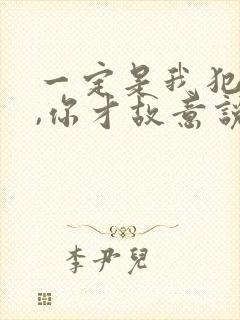 一定是我犯
,你才故意說
李尹兒